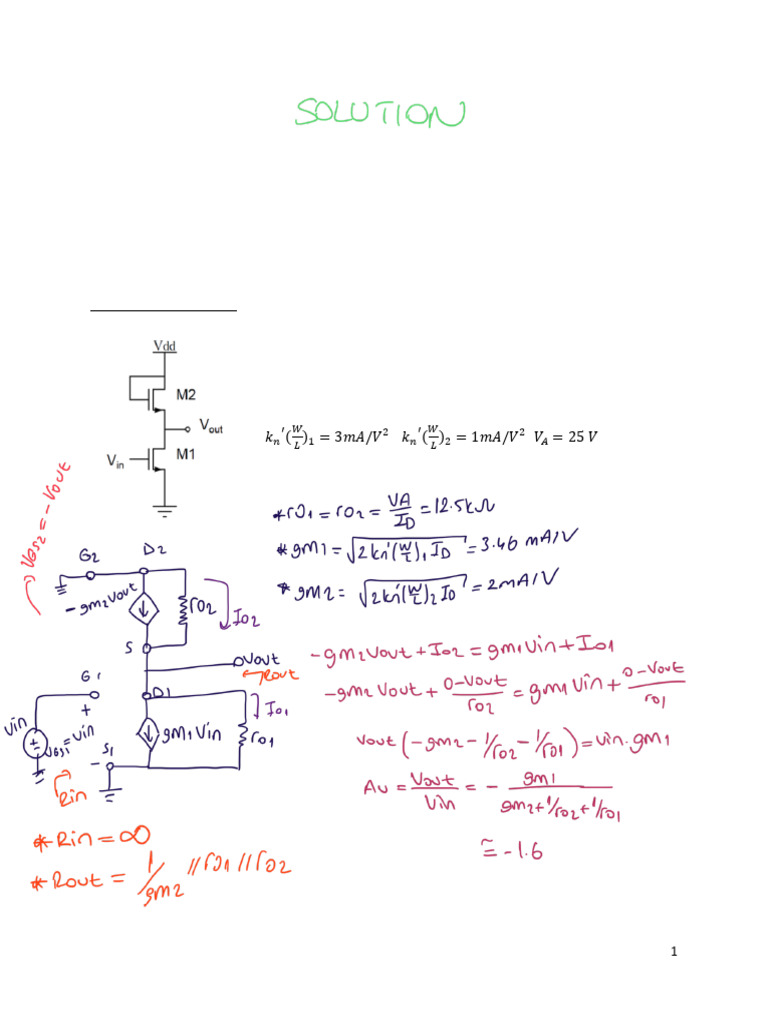 SOLUTION
Vdd
M2
Vout
M1
Vin
kn′(W/L)1 = 3mA/V² kn′(W/L)2 = 1mA/V² VA = 25 V
*ro1 = ro2 = VA/ID = 12.5kΩ
*gm1 = √2kn'(W/L)1 ID = 3.46 mA/V
*gm2 = √2kn'(W/L)2 ID = 2mA/V
VGS2 = -Vout
G2
D2
-gm2Vout
ro2
Io2
S
Vout
Rout
G1
D1
Io1
Vin
+
VGS1=Vin
-
S1
gm1Vin
ro1
Rin
-gm2Vout + Io2 = gm1Vin + Io1
-gm2Vout + 0-Vout/ro2 = gm1Vin + 0-Vout/ro1
Vout(-gm2 - 1/ro2 - 1/ro1) = Vin.gm1
Av = Vout/Vin = - gm1/gm2+1/ro2+1/ro1
≅ -1.6
*Rin = ∞
*Rout = 1/gm2 // ro1 // ro2
1